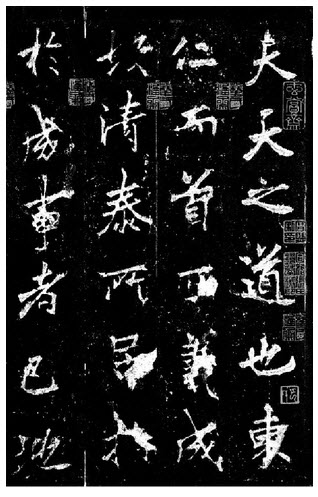 夫天之道也東
仁而首西義成
故清泰所居指
於成事者已地